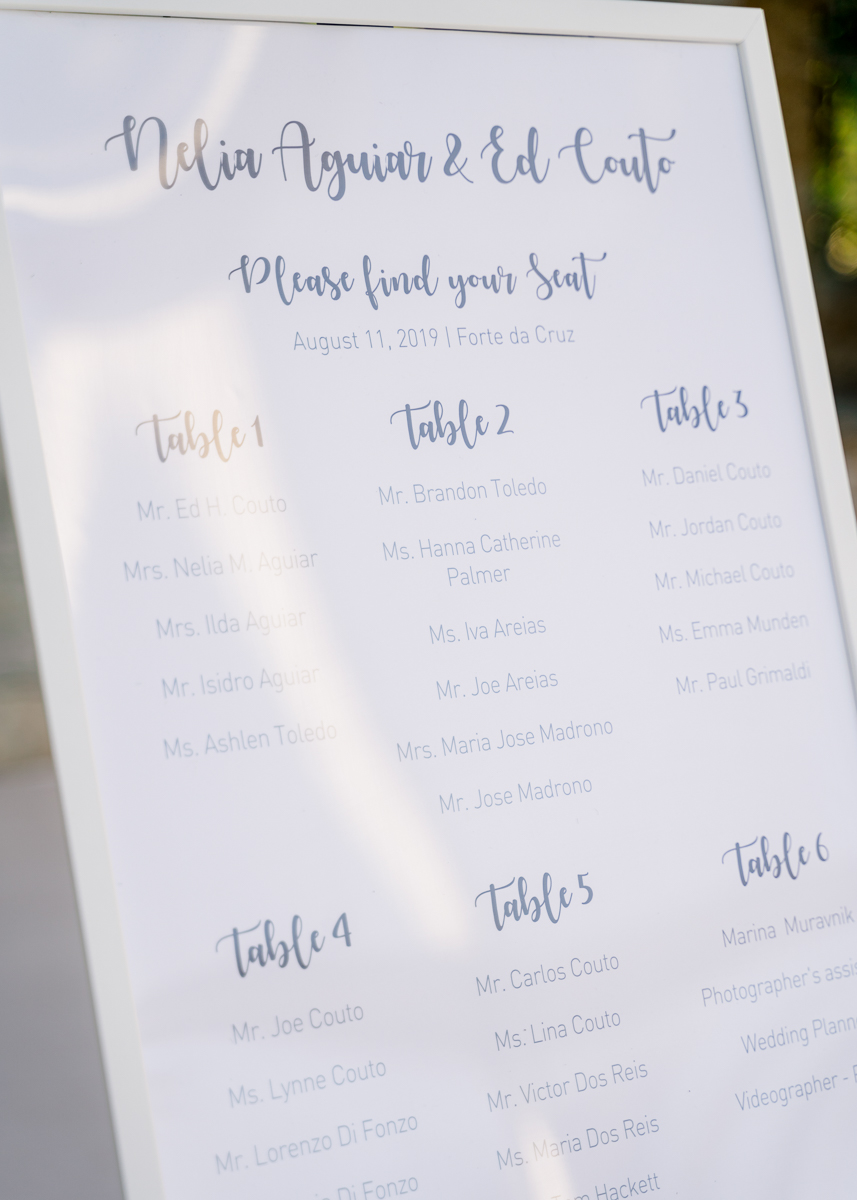 Nelia Aguiar & Ed Couto
Please find your Seat
August 11, 2019 | Forte da Cruz
Table 1
Mr. Ed H. Couto
Mrs. Nelia M. Aguiar
Mrs. Ilda Aguiar
Mr. Isidro Aguiar
Ms. Ashlen Toledo
Table 2
Mr. Brandon Toledo
Ms. Hanna Catherine
Palmer
Ms. Iva Areias
Mr. Joe Areias
Mrs. Maria Jose Madrono
Mr. Jose Madrono
Table 3
Mr. Daniel Couto
Mr. Jordan Couto
Mr. Michael Couto
Ms. Emma Munden
Mr. Paul Grimaldi
Table 4
Mr. Joe Couto
Ms. Lynne Couto
Mr. Lorenzo Di Fonzo
Di Fonzo
Table 5
Mr. Carlos Couto
Ms. Lina Couto
Mr. Victor Dos Reis
Ms. Maria Dos Reis
Hackett
Table 6
Marina Muravnik
Photographer's
Wedding
Videographer -